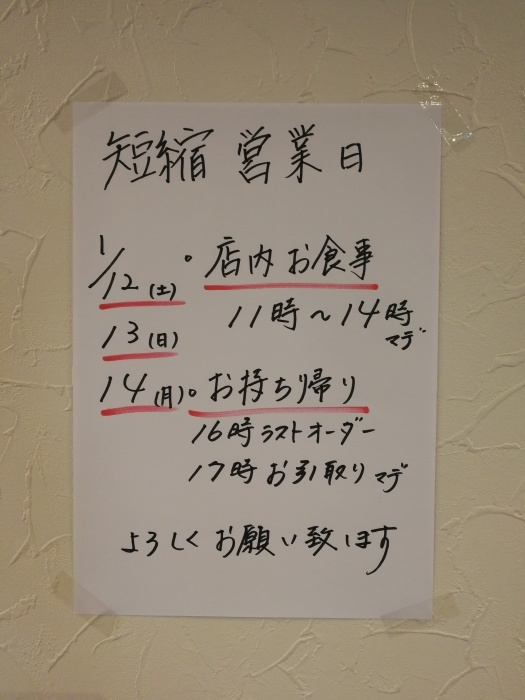 短縮 営業日
1/12(土)。店内お食事
11時～14時マデ
13(日)
14(月)。お持ち帰り
16時ラストオーダー
17時お引取りマデ
よろしくお願い致します